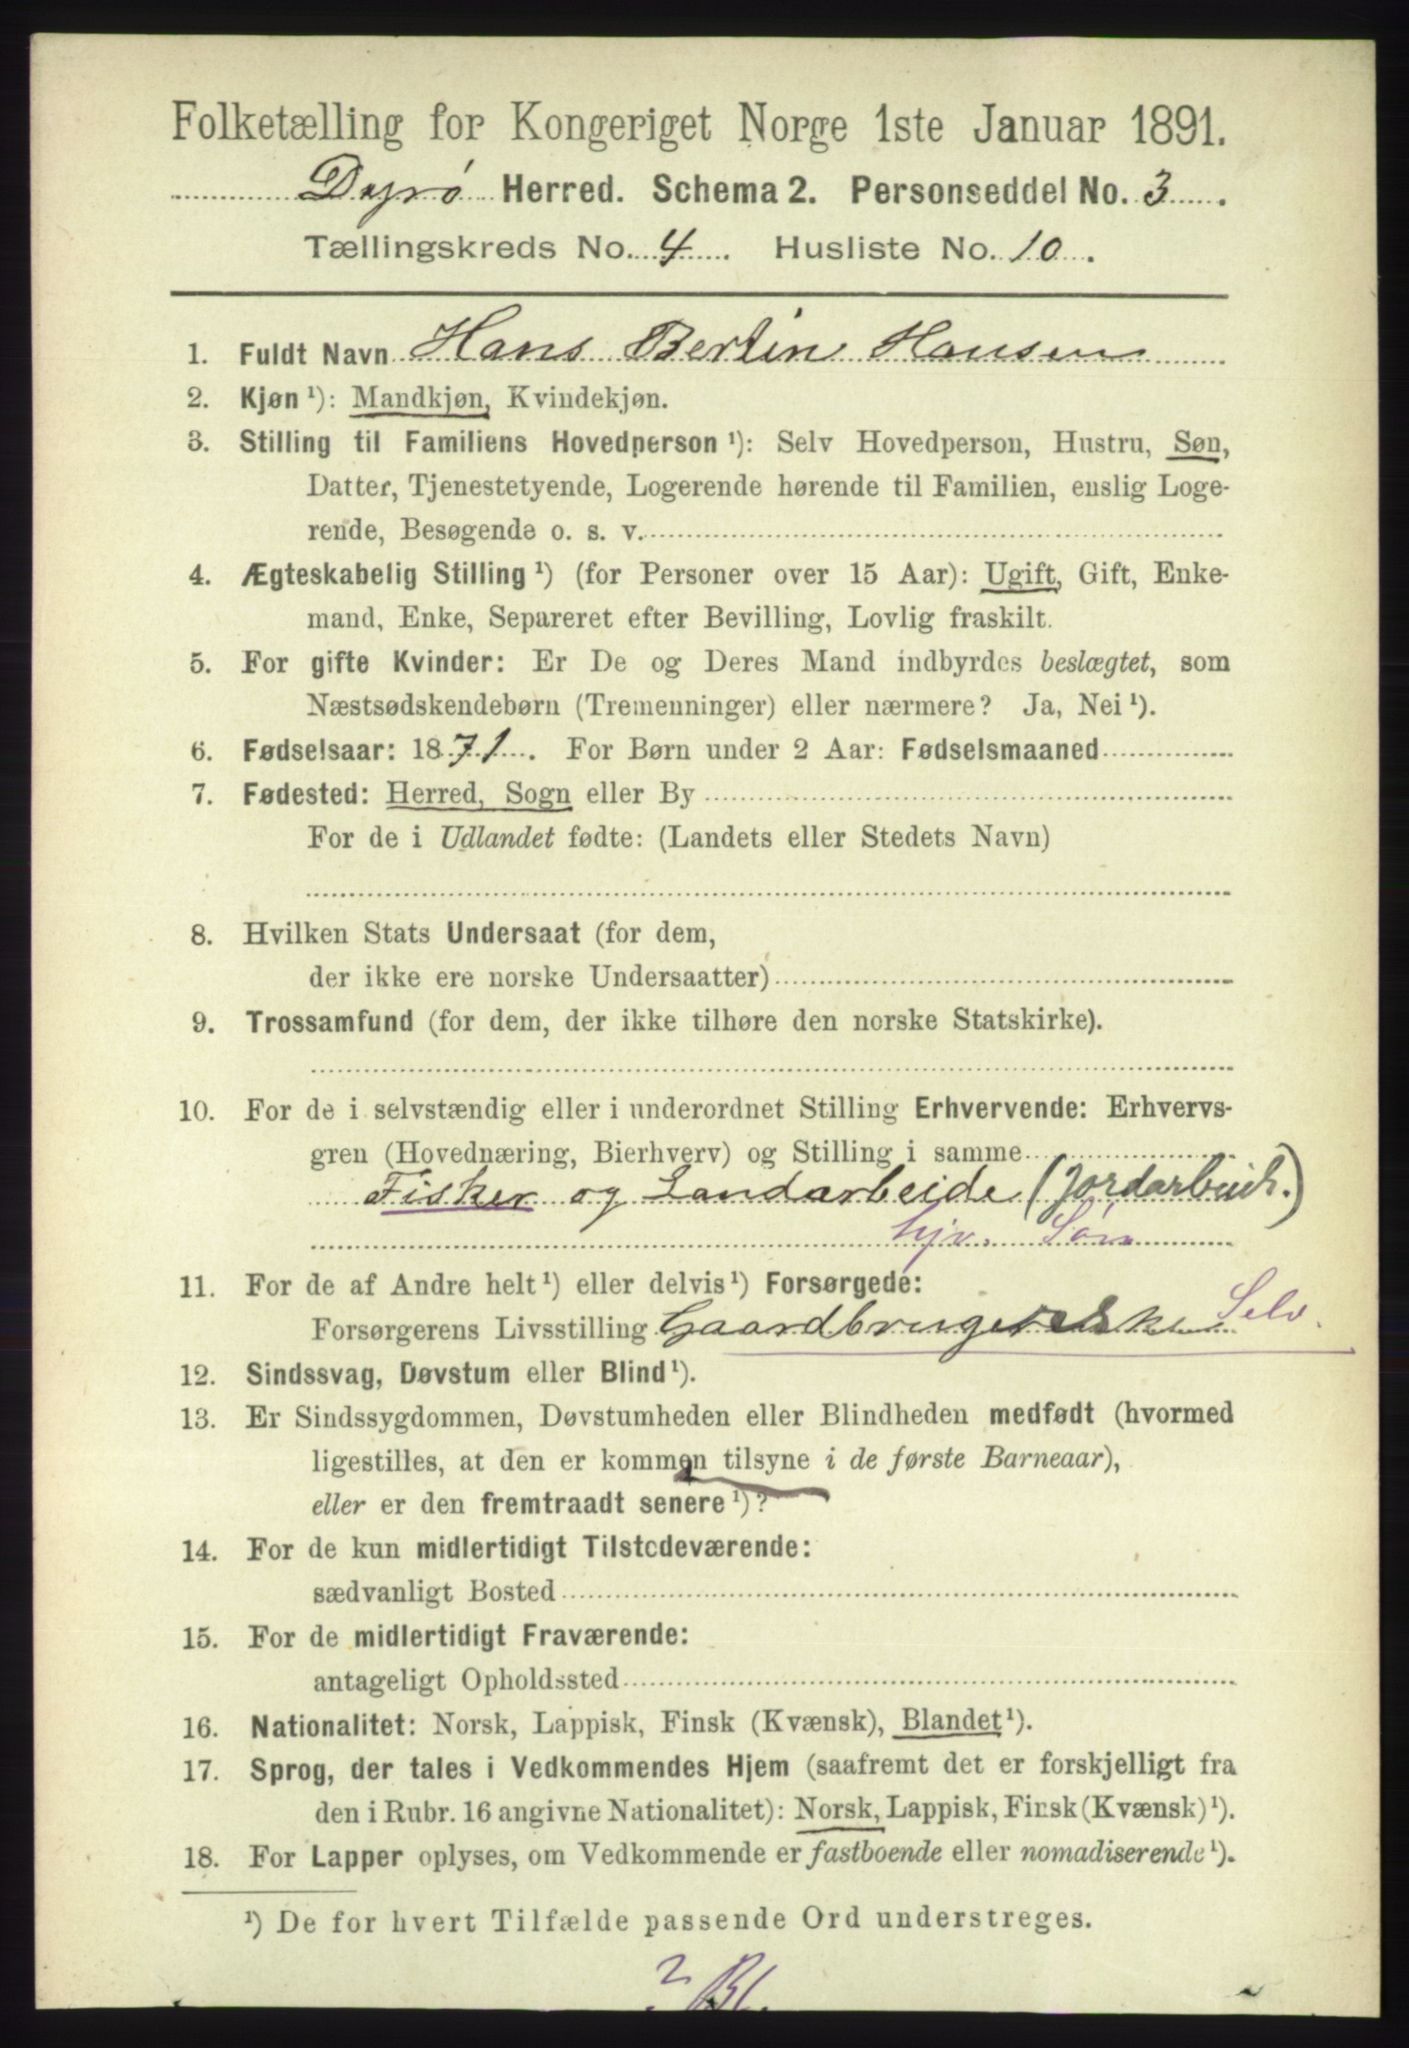 Folketælling for Kongeriget Norge 1ste Januar 1891.
Dyrø Herred. Schema 2. Personseddel No. 3
Tællingskreds No. 4. Husliste No. 10.
1. Fuldt Navn Hans Bertin Hansen
2. Kjøn¹): Mandkjøn, Kvindekjøn.
3. Stilling til Familiens Hovedperson¹): Selv Hovedperson, Hustru, Søn,
Datter, Tjenestetyende, Logerende hørende til Familien, enslig Loge-
rende, Besøgende o. s. v.
4. Ægteskabelig Stilling¹) (for Personer over 15 Aar): Ugift, Gift, Enke-
mand, Enke, Separeret efter Bevilling, Lovlig fraskilt.
5. For gifte Kvinder: Er De og Deres Mand indbyrdes beslægtet, som
Næstsødskendebørn (Tremenninger) eller nærmere? Ja, Nei¹).
6. Fødselsaar: 1871. For Børn under 2 Aar: Fødselsmaaned
7. Fødested: Herred, Sogn eller By
For de i Udlandet fødte: (Landets eller Stedets Navn)
8. Hvilken Stats Undersaat (for dem,
der ikke ere norske Undersaatter)
9. Trossamfund (for dem, der ikke tilhøre den norske Statskirke).
10. For de i selvstændig eller i underordnet Stilling Erhvervende: Erhvervs-
gren (Hovednæring, Bierhverv) og Stilling i samme
Fisker og Landarbeide (Jordarbeid.)
hjv. Søn
11. For de af Andre helt¹) eller delvis¹) Forsørgede:
Forsørgerens Livsstilling Gaardbrugerske Selv.
12. Sindssvag, Døvstum eller Blind¹).
13. Er Sindssygdommen, Døvstumheden eller Blindheden medfødt (hvormed
ligestilles, at den er kommen tilsyne i de første Barneaar),
eller er den fremtraadt senere¹)?
14. For de kun midlertidigt Tilstedeværende:
sædvanligt Bosted
15. For de midlertidigt Fraværende:
antageligt Opholdssted
16. Nationalitet: Norsk, Lappisk, Finsk (Kvænsk), Blandet¹).
17. Sprog, der tales i Vedkommendes Hjem (saafremt det er forskjelligt fra
den i Rubr. 16 angivne Nationalitet): Norsk, Lappisk, Finsk (Kvænsk)¹).
18. For Lapper oplyses, om Vedkommende er fastboende eller nomadiserende¹).
¹) De for hvert Tilfælde passende Ord understreges.
? Bl.